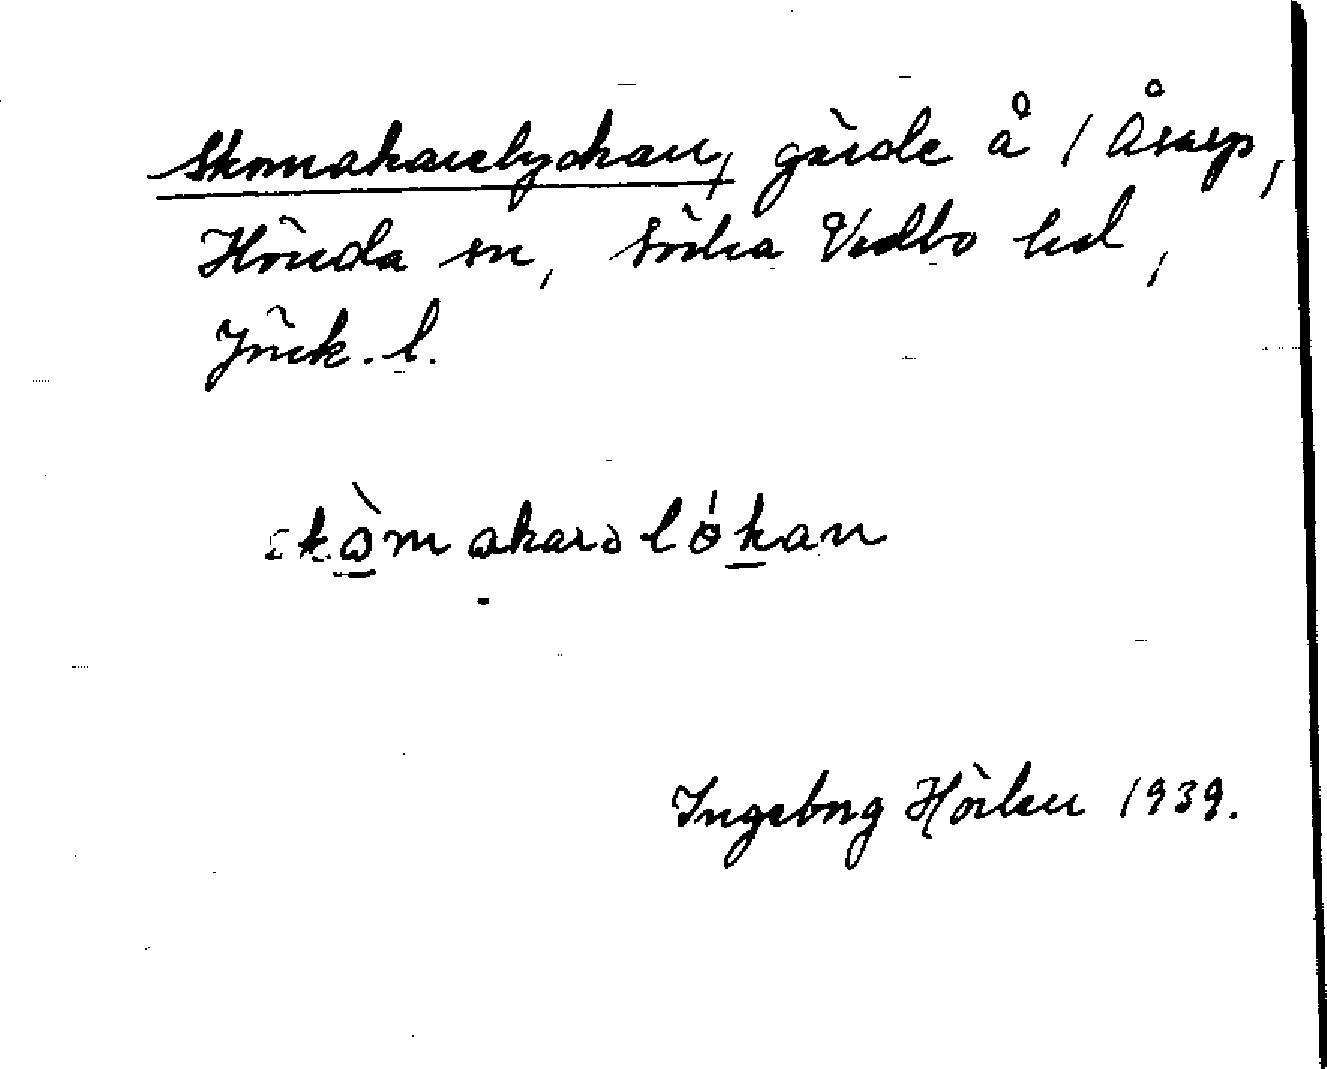 Skomakarelyckan, gärde å / Åsarp,
Höreda sn, Södra Vedbo hd,
Jönk. l.
skòmakarə lókan
Ingeborg Hörlén 1939.